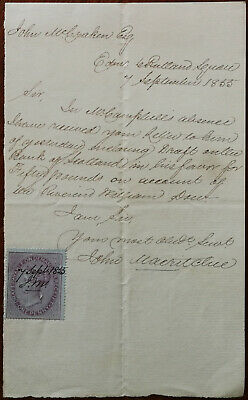 John McCraken Esq
Edinr 6 Rutland Square
7 September 1855
Sir
In Mr Campbells absence
I have received your letter to him
of yesterday inclosing Draft on the
Bank of Scotland in his favor for
Fifty pounds on account of
the Reverend William
I am Sir
Your most obedt Servt
John
7 Sept 1855